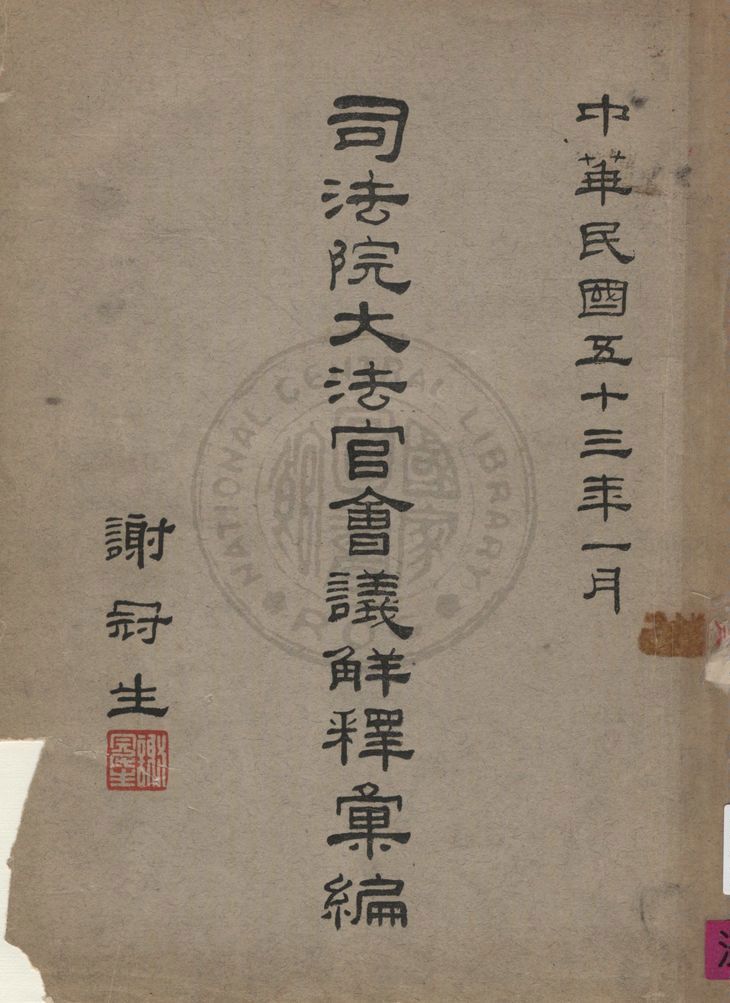 中華民國五十三年一月
司法院大法官會議解釋彙編
謝冠生
謝冠生
NATIONAL CENTRAL LIBRARY
國家圖書館
R.O.C.
法